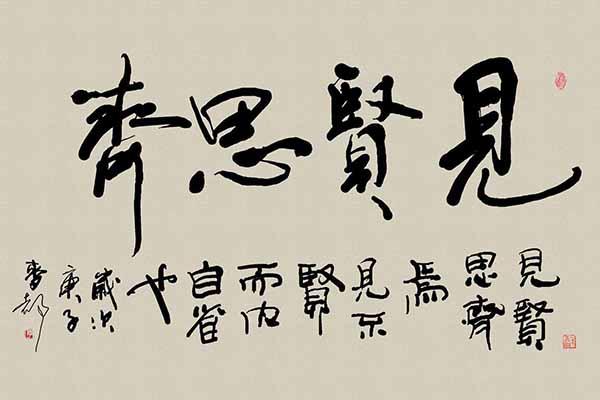 見賢思齊
見賢
思齊
焉
見不
賢
而内
自省
也
歲次
庚子